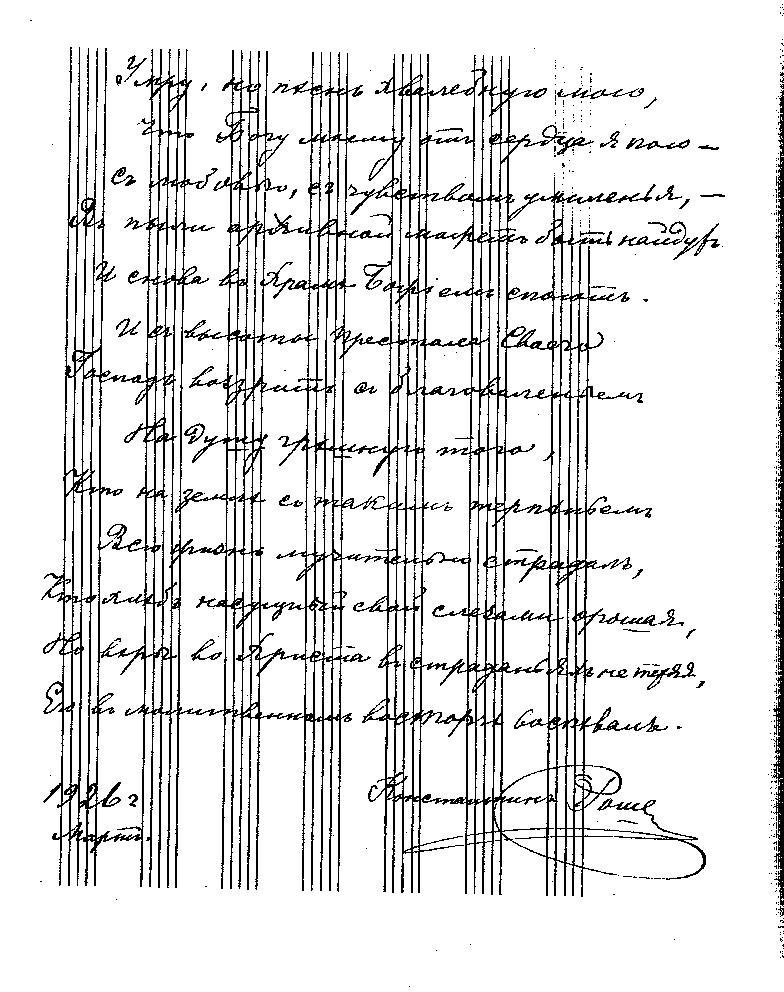 Умру, но пѣснь хвалебную мою,
Что Богу моему отъ сердца я пою —
Съ любовью, съ чувствомъ умиленья, —
Въ пыли архивной можетъ быть найдутъ
И снова въ Храмѣ Божіемъ споютъ.
И съ высоты престола Своего
Господь воззритъ съ благоволеньемъ
На душу грѣшную того,
Кто на землѣ съ такимъ терпѣньемъ
Всю жизнь мучительно страдалъ,
Кто хлѣбъ насущный свой слезами орошая,
Но вѣры во Христа въ страданьяхъ не теряя,
Его въ молитвенномъ восторгѣ воспѣвалъ.
1926 г
Мартъ.
Константинъ Роше